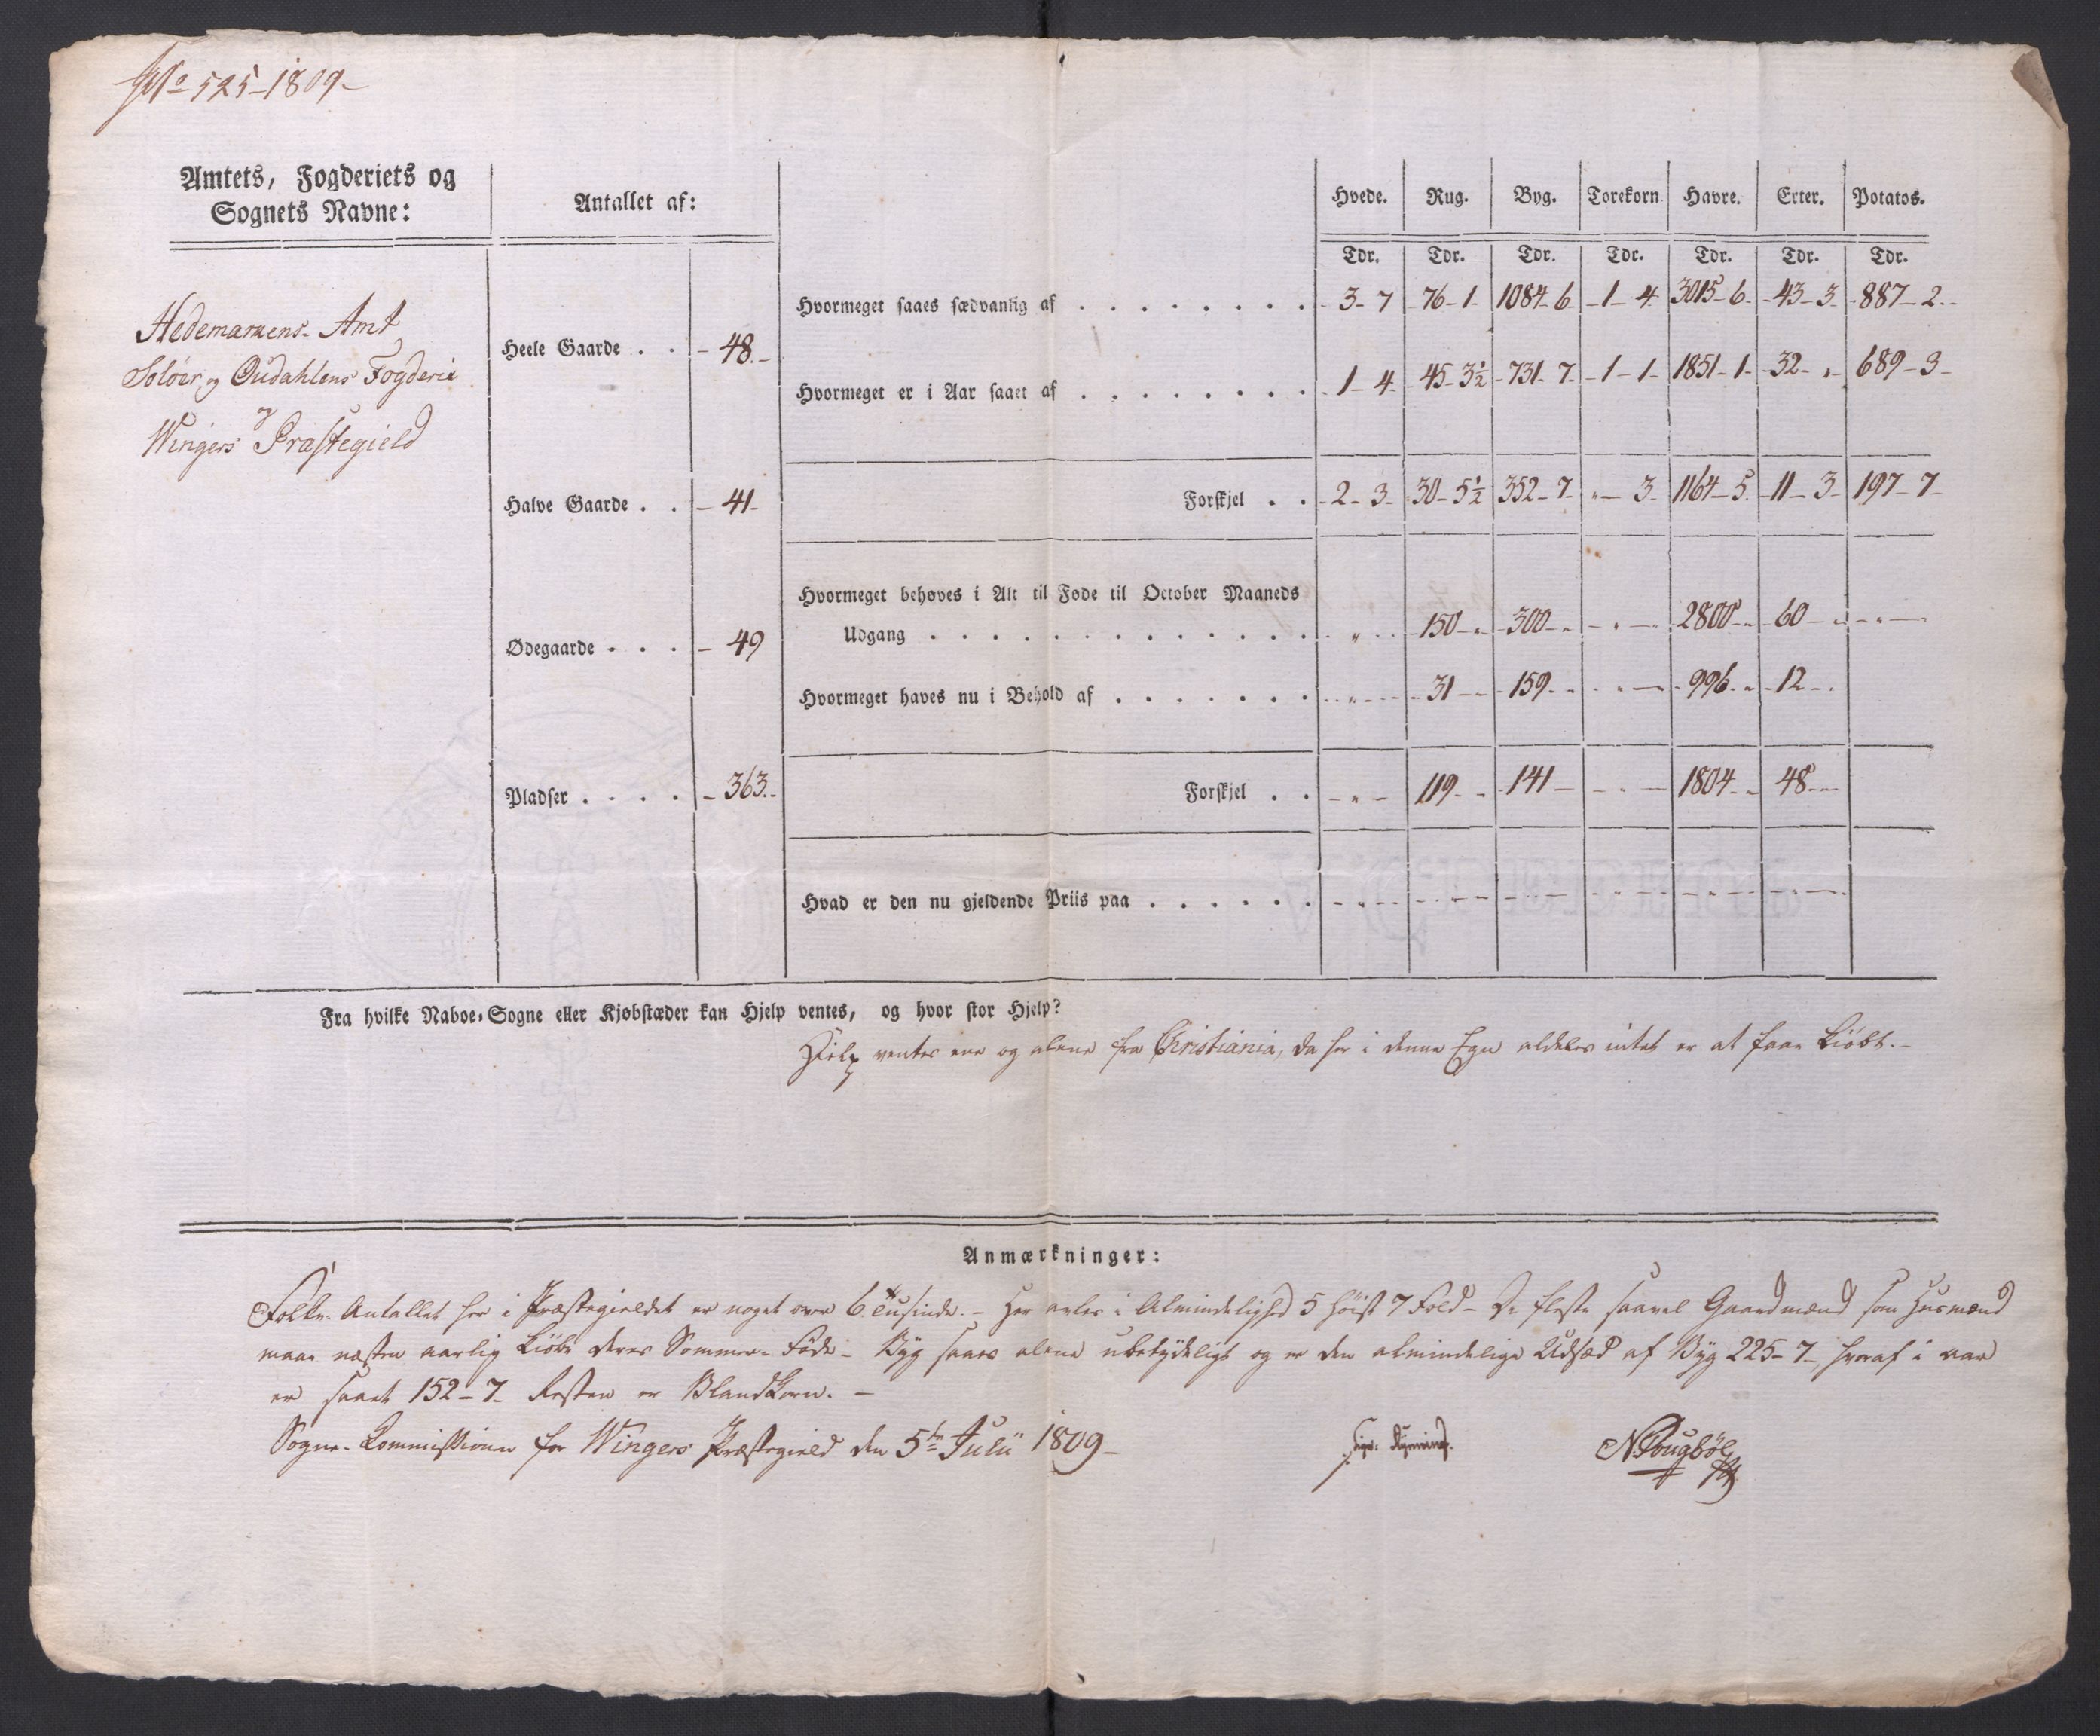 No 525-1809-
Amtets, Fogderiets og
Sognets Navne:
Antallet af:
Hvede. Rug. Byg. Torekorn. Havre. Erter. Potatos.
Tdr. Tdr. Tdr. Tdr. Tdr. Tdr. Tdr.
Hedemarkens- Amt
Soløer og Oudahlens Fogderie
og
Wingers Præstegield
Heele Gaarde . . - 48.-
Halve Gaarde . . - 41-
Ødegaarde . . . - 49
Pladser . . . . - 363.-
Hvormeget saaes sædvanlig af . . . . . . . . 3- 7 76- 1- 1084- 6 -1- 4 3015- 6- 43- 3- 887- 2-
Hvormeget er i Aar saaet af . . . . . . . . 1- 4 45- 3½ 731- 7- -1- 1- 1851- 1- 32- „- 689- 3-
Forskjel . . 2- 3- 30- 5½ 352- 7- „- 3- 1164- 5- 11- 3- 197- 7-
Hvormeget behøves i Alt til Føde til October Maaneds
Udgang . . . . . . . . . . . . . „ 150- „ 300- „ - „ - 2800- „ 60- „ - „ -
Hvormeget haves nu i Behold af . . . . . . . - „ - 31- - 159- - - „ - 996- „ 12- -
Forskjel . . - „ - 119- - 141- - „ - 1804- - 48- -
Hvad er den nu gjeldende Priis paa . . . . . .
Fra hvilke Naboe-Sogne eller Kjøbstæder kan Hjelp ventes, og hvor stor Hjelp?
Hielp ventes ene og alene fra Christiania, da her i denne Egn aldeles intet er at faae kiöbt.-
Anmærkninger:
Folke-Antallet her i Præstegieldet er noget over 6 tusinde.- Her avles i Almindelighed 5 höist 7 Fold- De fleste saavel Gaardmænd som Husmænd
maae næsten aarlig kiöbe deres Sommer-Föde- Byg saaes alene ubetydeligt og er den almindelige Udsæd af Byg 225- 7- hvoraf i aar
er saaet 152- 7- Resten er Blandkorn.-
Sogne-Commissionen for Wingers Præstegield den 5te Julii 1809-